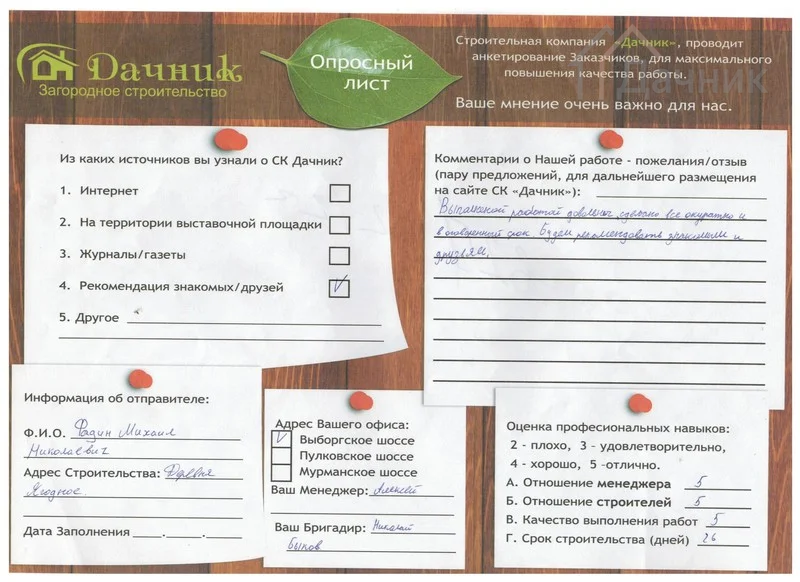 Дачник
Загородное строительство
Опросный
лист
Строительная компания «Дачник», проводит
анкетирование Заказчиков, для максимального
повышения качества работы.
Ваше мнение очень важно для нас.
Дачник
Из каких источников вы узнали о СК Дачник?
1. Интернет
2. На территории выставочной площадки
3. Журналы/газеты
4. Рекомендация знакомых/друзей
5. Другое
Комментарии о Нашей работе - пожелания/отзыв
(пару предложений, для дальнейшего размещения
на сайте СК «Дачник»):
работой довольны, сделано все окуратно и
в оговоренный срок. Будем рекомендовать знакомым и
друзьям.
Информация об отправителе:
Ф.И.О. Фадин Михаил
Николаевич
Адрес Строительства: Деревня
Ягодное.
Дата Заполнения ____.____.____
Адрес Вашего офиса:
Выборгское шоссе
Пулковское шоссе
Мурманское шоссе
Ваш Менеджер: Алексей
Ваш Бригадир: Николай
Быков
Оценка профессиональных навыков:
2 - плохо, 3 - удовлетворительно,
4 - хорошо, 5 -отлично.
А. Отношение менеджера 5
Б. Отношение строителей 5
В. Качество выполнения работ 5
Г. Срок строительства (дней) 26